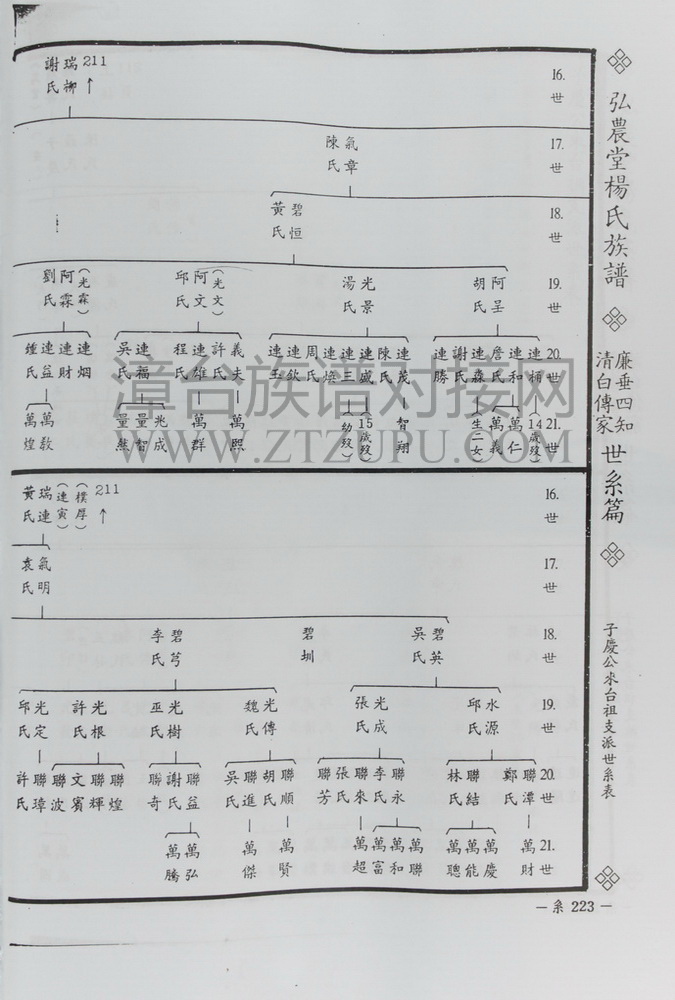 弘農堂楊氏族譜
廉垂四知
清白傳家
世系篇
子慶公來台祖支派世系表
16.世
211 ↑
瑞柳
謝氏
17.世
氣章
陳氏
18.世
碧恒
黃氏
19.世
阿呈
胡氏
光景
湯氏
阿文（光文）
邱氏
阿霖（光霖）
劉氏
20.世
連桶
連和
詹氏
連森
謝氏
連勝
連茂
陳氏
連盛
連三
連燦
周氏
連欽
連玉
義夫
許氏
連雄
程氏
連福
吳氏
連烟
連財
連益
鍾氏
21.世
（14歲歿）
萬仁
萬義
（生二女）
智翔
（15歲歿）
（幼歿）
萬熙
萬群
兆成
量智
量然
萬教
萬煌
16.世
211 ↑
瑞連（連寅）（樸厚）
黃氏
17.世
氣明
袁氏
18.世
碧英
吳氏
碧圳
碧芎
李氏
19.世
水源
邱氏
光成
張氏
光傳
魏氏
光樹
巫氏
光根
許氏
光定
邱氏
20.世
聯潭
鄭氏
聯結
林氏
聯永
李氏
聯來
張氏
聯芳
聯順
胡氏
聯進
吳氏
聯益
謝氏
聯奇
聯煌
聯輝
文賓
聯波
聯璋
許氏
21.世
萬財
萬慶
萬能
萬聰
萬聯
萬和
萬富
萬超
萬賢
萬傑
萬弘
萬騰
－系 223－
漳台族谱对接网
WWW.ZTZUPU.COM